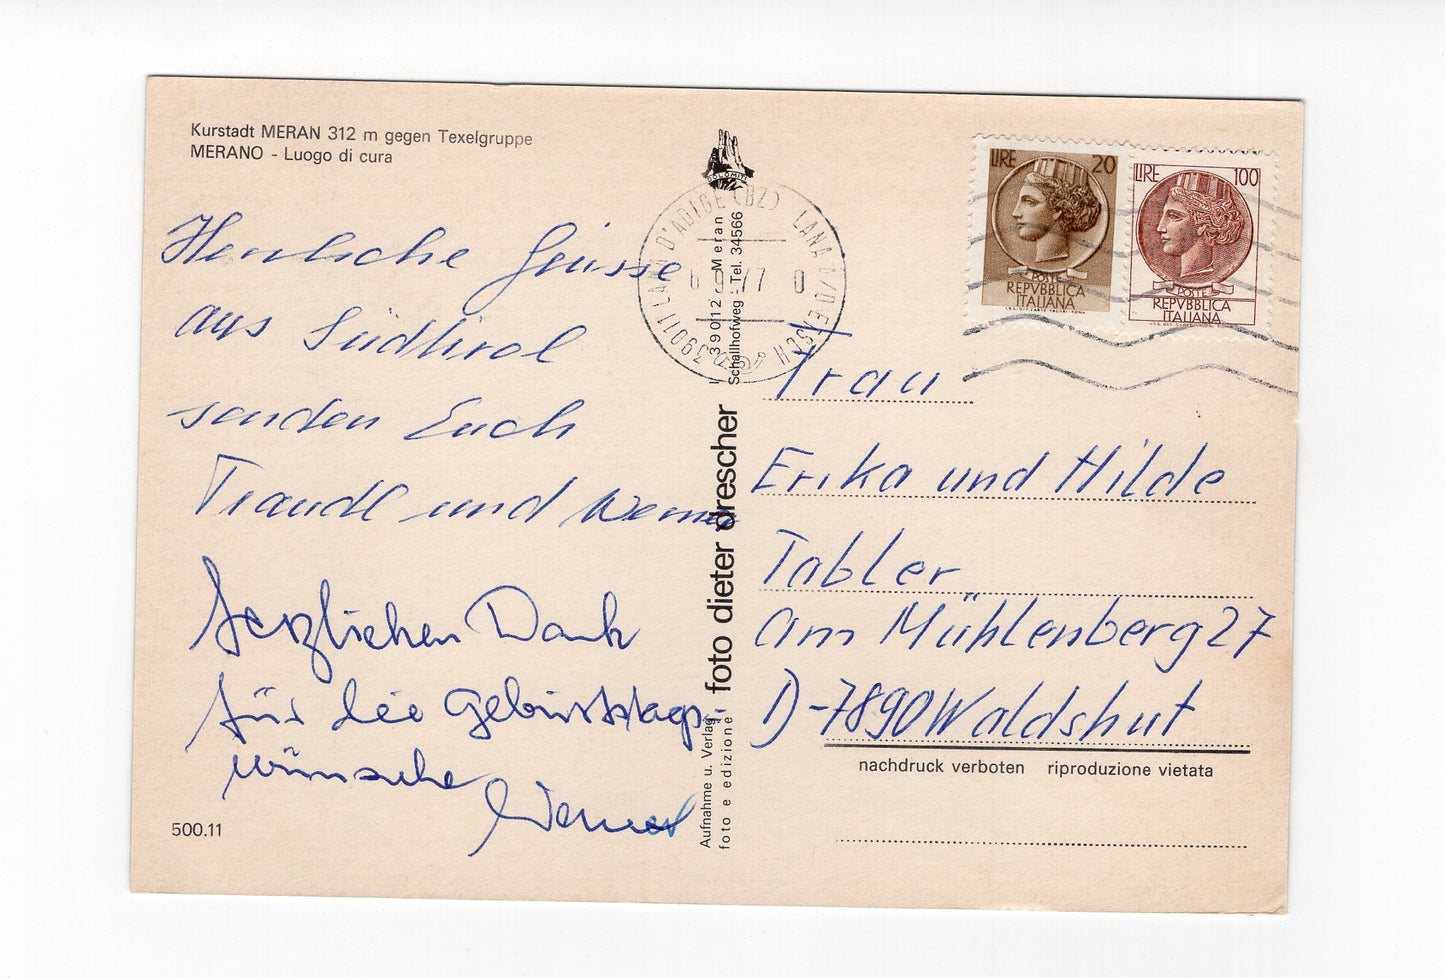 Kurstadt MERAN 312 m gegen Texelgruppe
MERANO - Luogo di cura
Herrliche Grüsse
aus Südtirol
senden Euch
Traudl und Werner
Herzlichen Dank
für die Geburtstags-
wünsche Werner
500.11
DOLOMITI
39011 LANA D'ADIGE (BZ) LANA A/D ETSCH
6 9 77 0
I 39012 Meran
Schallhofweg - Tel. 34566
foto dieter drescher
Aufnahme u. Verlag
foto e edizione
LIRE 20
POSTE
REPVBBLICA
ITALIANA
LIRE 100
POSTE
REPVBBLICA
ITALIANA
Frau
Erika und Hilde
Tabler
Am Mühlenberg 27
D-7890 Waldshut
nachdruck verboten riproduzione vietata